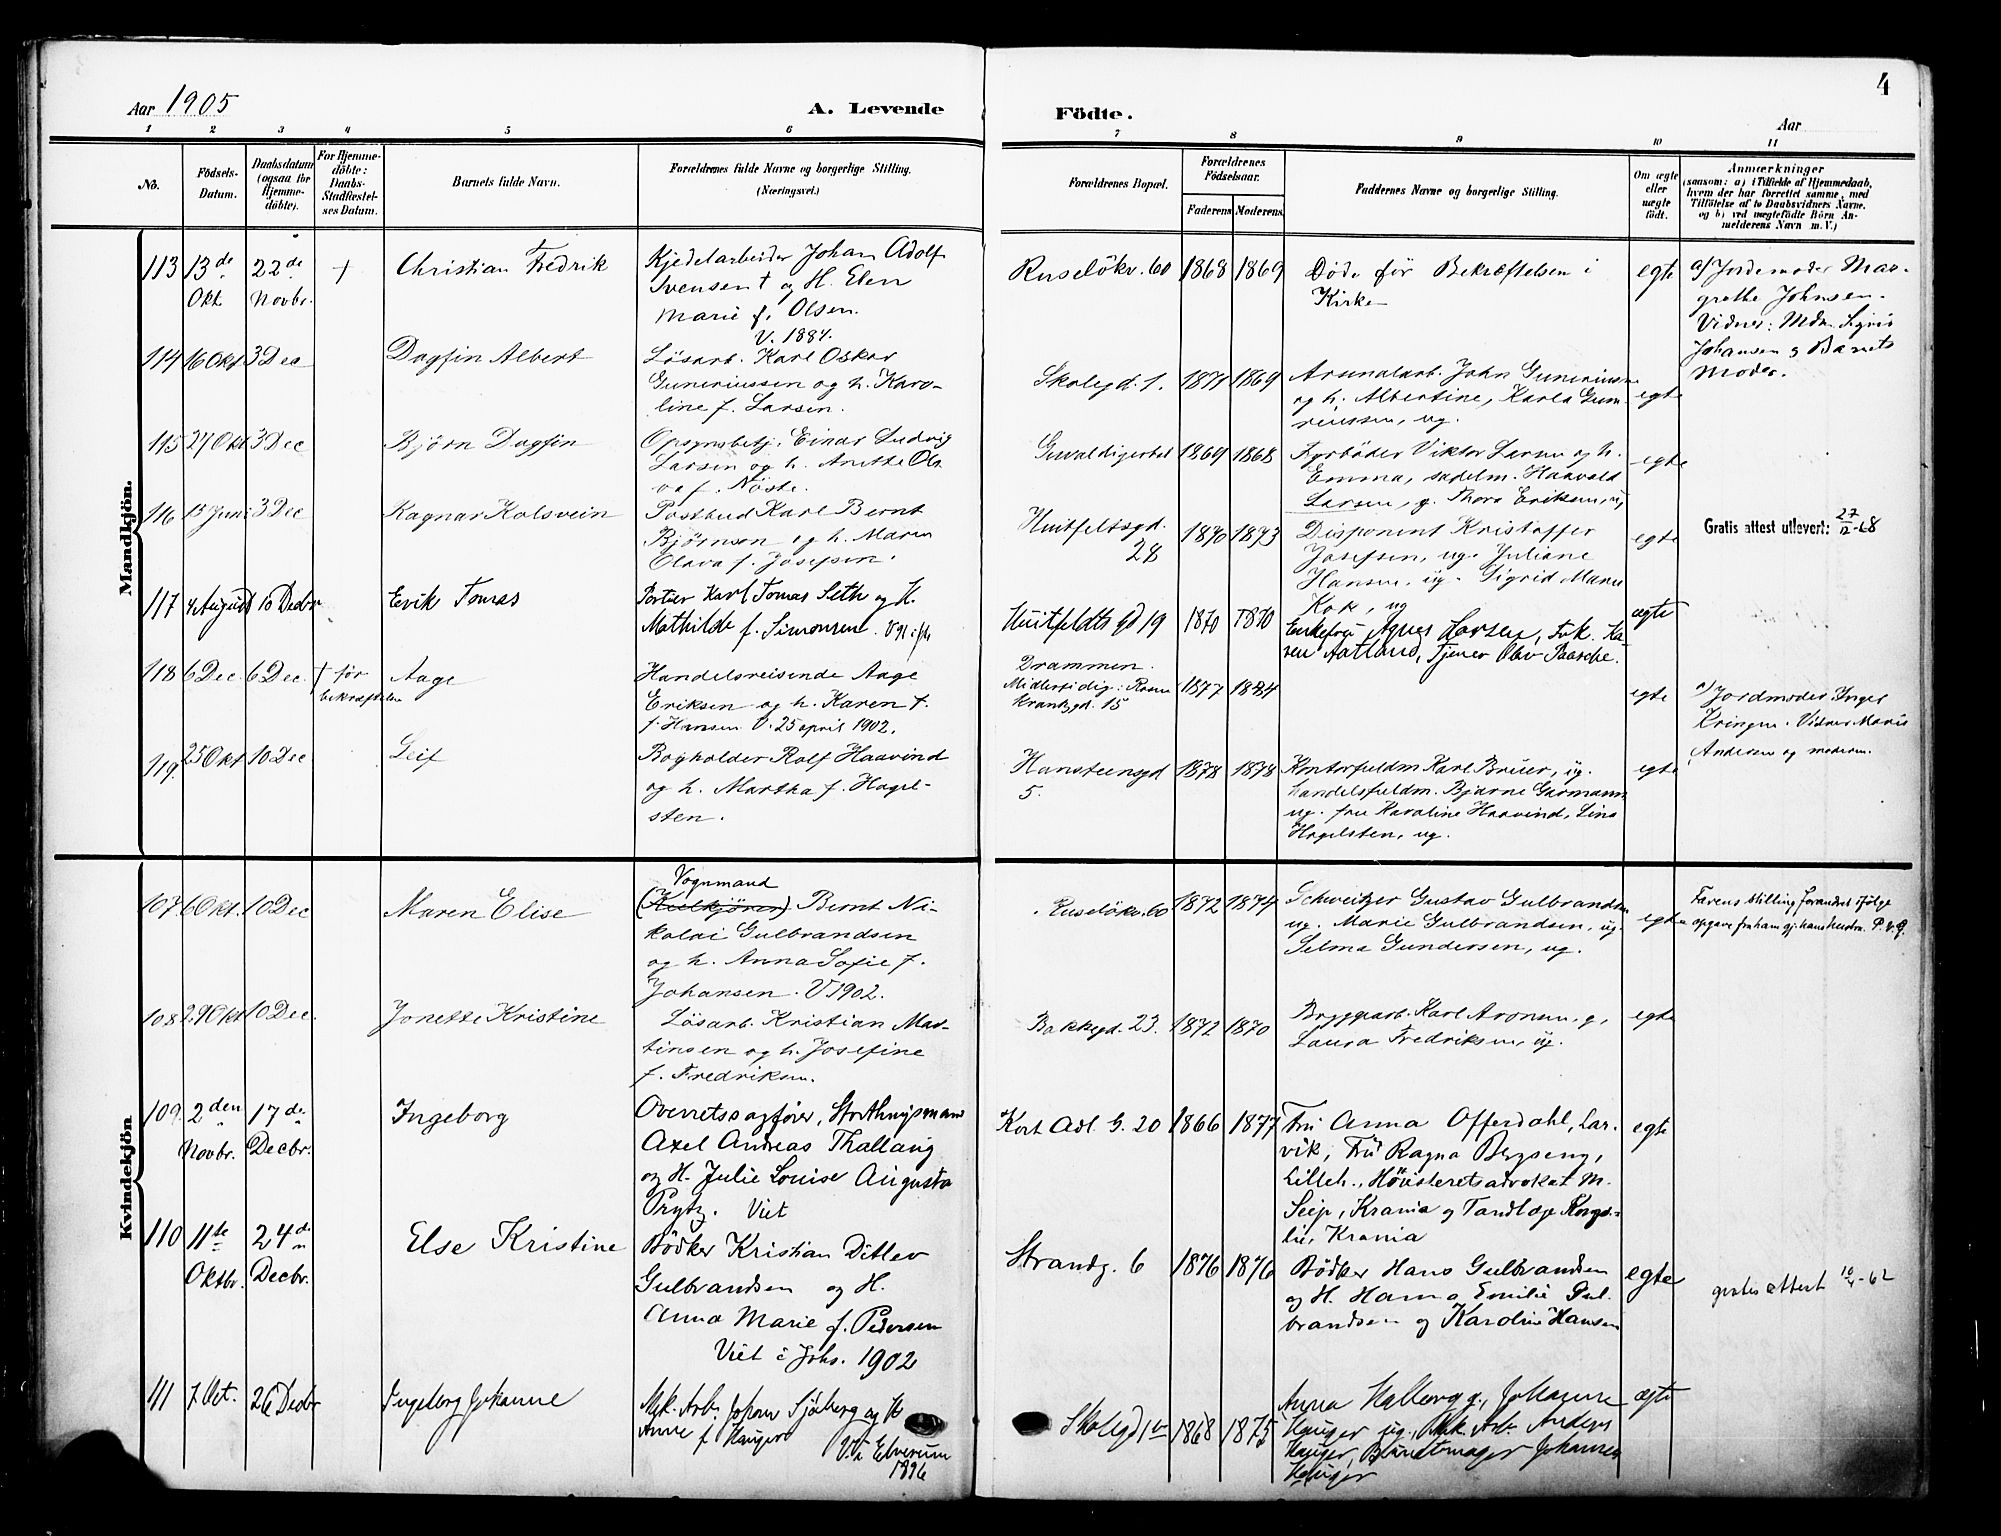 4
Aar 1905
A. Levende
Födte.
Aar
1 2 3 4 5 6 7 8 9 10 11
No.
Födsels-
Datum.
Daabsdatum
(ogsaa for
Hjemme-
döbte).
For Hjemme-
döbte:
Daabs-
Stadfæstel-
ses Datum.
Barnets fulde Navn.
Forældrenes fulde Navne og borgerlige Stilling.
(Næringsvei.)
Forældrenes Bopæl.
Forældrenes
Födselsaar.
Faderens Moderens
Faddernes Navne og borgerlige Stilling.
Om ægte
eller
uægte
födt.
Anmærkninger
(saasom: a) i Tilfælde af Hjemmedaab,
hvem der har forrettet samme, med
Tilföielse af to Daabsvidners Navne,
og b) ved uægtefödte Börn An-
melderens Navn m. V.)
Mandkjön.
113 13de Okt. 22de Novbr. † Christian Fredrik
Kjedelarbeider Johan Adolf
Svensen † og H. Elen
Marie f. Olsen.
V. 1887.
Ruselökv. 60 1868 1869
Döde för Bekræftelsen i
Kirke
egte
a) Jordemoder Mar-
grethe Johnsen.
Vidner: Mdm Sigrid
Johansen & Barnets
Moder.
114 16 Okt 3 Dec Dagfin Albert
Løsarb. Karl Oskar
Guneriussen og h. Karo-
line f. Larsen.
Skolegd. 1. 1871 1869
Arsenalarb. John Guneriussen
og h. Albertine, Karla Gune-
riussen, ug.
egte
115 27 Okt 3 Dec Bjørn Dagfin
Opsynsbetj. Einar Ludvig
Larsen og h. Anette Ols
va f. Nöste.
1869 1868
Fyrböder Viktor Larsen og h.
Emma, sadelm. Haavald
Larsen, g. Thora Eriksen, ug
egte
116 13 Juni 3 Dec Ragnar Kolsvein
Postbud Karl Bernt
Björnson og h. Maren
Olava f. Josefsen.
Huitfeltsgd.
28
1870 1873
Disponent Kristoffer
Josefsen, ug. Juliane
Hansen, ug. Sigrid Marie
Kok, ug
egte
Gratis attest utlevert: 27/12-68
117 4 August 10 Decbr Erik Tomas
Portier Karl Tomas Seth og H.
Mathilde f. Simonsen.
Huitfeldts gd 19 1870 1870
Enkefru Agnes Larsen, Frk. Ka
ren Aatland, Tjener Olav Paasche.
ægte
118 6 Dec. 6 Dec. † før
bekræftelsen
Aage
Handelsreisende Aage
Eriksen og h. Karen f.
f. Hansen V. 25 april 1902.
Drammen.
Midlertidig: Rosen
krantzgd. 15
1877 1884
egte
a) Jordmoder Inger
Kringen. Vidner Marie
Andersen og moderen.
119. 25 Okt 10 Dec Leif
Bogholder Rolf Haavind
og h. Martha f. Hagel-
sten.
Hansteensgd
5.
1878 1878
Kontorfuldm Karl Bruer, ug.
handelsfuldm. Bjarne Garmann
ug. fru Karoline Haavind, Lina
Hagelsten, ug.
egte
Kvindekjön
107 6 Okt. 10 Dec Maren Elise
Vognmand
(Kuelkjörer) Bernt Ni-
kolai Gulbrandsen
og h. Anna Sofie f.
Johansen. V 1902.
Ruselökv. 60 1872 1874
Schweitzer Gustav Gulbrandsen
ug. Marie Gulbrandsen, ug.
Selma Gundersen, ug.
egte
Farens stilling forandret ifølge
opgave fra ham gj. hans hustru. P.v.Q.
108 29 Okt 10 Dec. Jonette Kristine
Løsarb. Kristian Mar-
tinsen og h. Josefine
f. Fredriksen.
Bakkegd. 23. 1872 1870
Bryggearb. Karl Aronsen, g.,
Laura Fredriksen, ug.
egte
109. 2den Novbr. 17de Decbr. Ingeborg
Overretssagfører, Storthingsmand
Axel Andreas Thallaug
og H. Julie Louise Augusta
Prytz. Viet
Kort Adl. G. 20 1866 1877
Fru Anna Offerdahl, Lar-
vik, Fru Ragna Bergseng,
Lilleh., Höiesteretsadvokat M.
Seip, Krania og Tandlæge Korgs-
lie, Krania
egte
110 11te Oktbr. 24de Decbr. Else Kristine
Bödker Kristian Ditlev
Gulbrandsen og H.
Anna Marie f. Pedersen
Viet i Johs. 1902
Strandg. 6 1876 1876
Bödker Hans Gulbrandsen
og H. Hanna Emilie Gul-
brandsen og Karoline Hansen
egte
gratis attest 10/4-62
111 7 Oct. 26 Decbr Ingeborg Johanne
Mek. Arb. Johan Sjöberg og H
Anne f Hauger
V. i Elverum
1896
Skolegd 1 1868 1875
Anna Halberg g., Johanne
Hauger ug., Mek. Arb. Anders
Hauger, Buntmager Johannes
Hauger
ægte